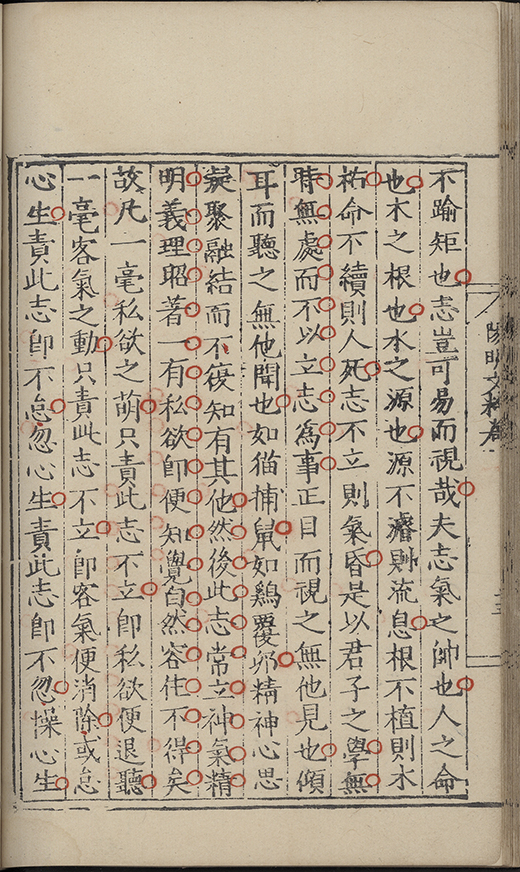 不踰矩也志豈可易而視哉夫志氣之帥也人之命
也木之根也水之源也源不濬則流息根不植則木
枯命不續則人死志不立則氣昏是以君子之學無
時無處而不以立志為事正目而視之無他見也傾
耳而聽之無他聞也如猫捕鼠如鷄覆卵精神心思
凝聚融結而不復知有其他然後此志常立神氣精
明義理昭著一有私欲即便知覺自然容住不得矣
故凡一毫私欲之萌只責此志不立即私欲便退聽
一毫客氣之動只責此志不立即客氣便消除或怠
心生責此志即不怠忽心生責此志即不忽懆心生